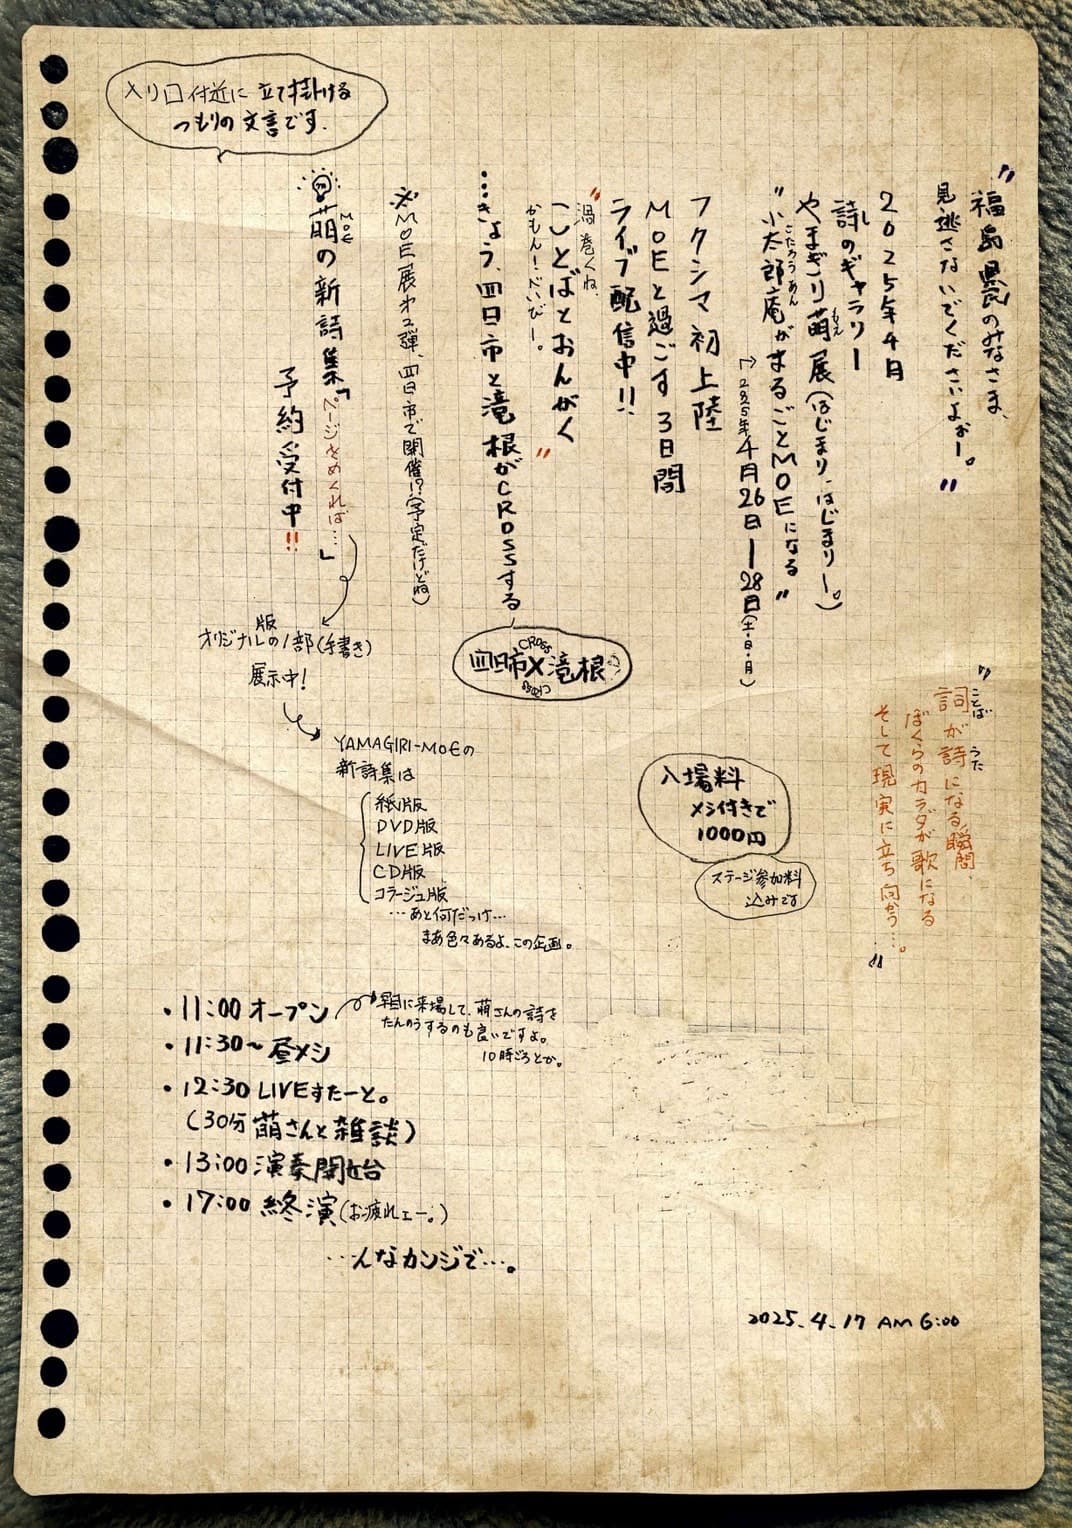 入り口付近に立て掛ける
つもりの文言です.
"福島県民のみなさま、
見逃さないでくださいよぉー。"
2025年4月
詩のギャラリー
やまぎり萌展(はじまり、はじまりー。)
もえ
"小太郎庵がまるごとMOEになる"
こたろうあん
→2025年4月26日ー28日(土・日・月)
フクシマ初上陸
MOEと過ごす3日間
ライブ配信中!!
"渦巻くね、
ことばとおんがく"
かもん!べいびー。
…きょう、四日市と滝根がCROSSする
CROSS
四日市×滝根
CROSS
※MOE展オ2弾、四日市で開催!?(予定だけどね)
萌の新詩集「ページをめくれば…」
MOE
予約受付中!!
オリジナル版の1部(手書き)
展示中!
YAMAGIRI-MOEの
新詩集は
紙版
DVD版
LIVE版
CD版
コラージュ版
…あと何だっけ…
まあ色々あるよ、この企画。
"詞が詩になる瞬間、
ことば うた
ぼくらのカラダが歌になる
そして現実に立ち向かう…。"
入場料
メシ付きで
1000円
ステージ参加料
込みです
・11:00 オープン
早目に来場して、萌さんの詩を
たんのうするのも良いですよ。
10時ごろとか。
・11:30〜昼メシ
・12:30 LIVEすたーと。
(30分 萌さんと雑談)
・13:00 演奏開始
・17:00 終演(お疲れェー。)
…んなカンジで…。
2025.4.17 AM 6:00